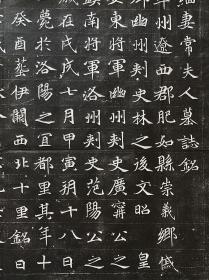 緬妻常夫人墓誌銘
州遼西郡肥如縣崇義鄉
幽州刺史林之後文昭皇
東將軍幽州刺史廣甯公之
鎮南將軍洛州刺史范陽公之
歲在戊戌七月甲寅朔十八日
薨於洛陽之宜都里其年十
癸酉葬伊闕西北十里銘曰